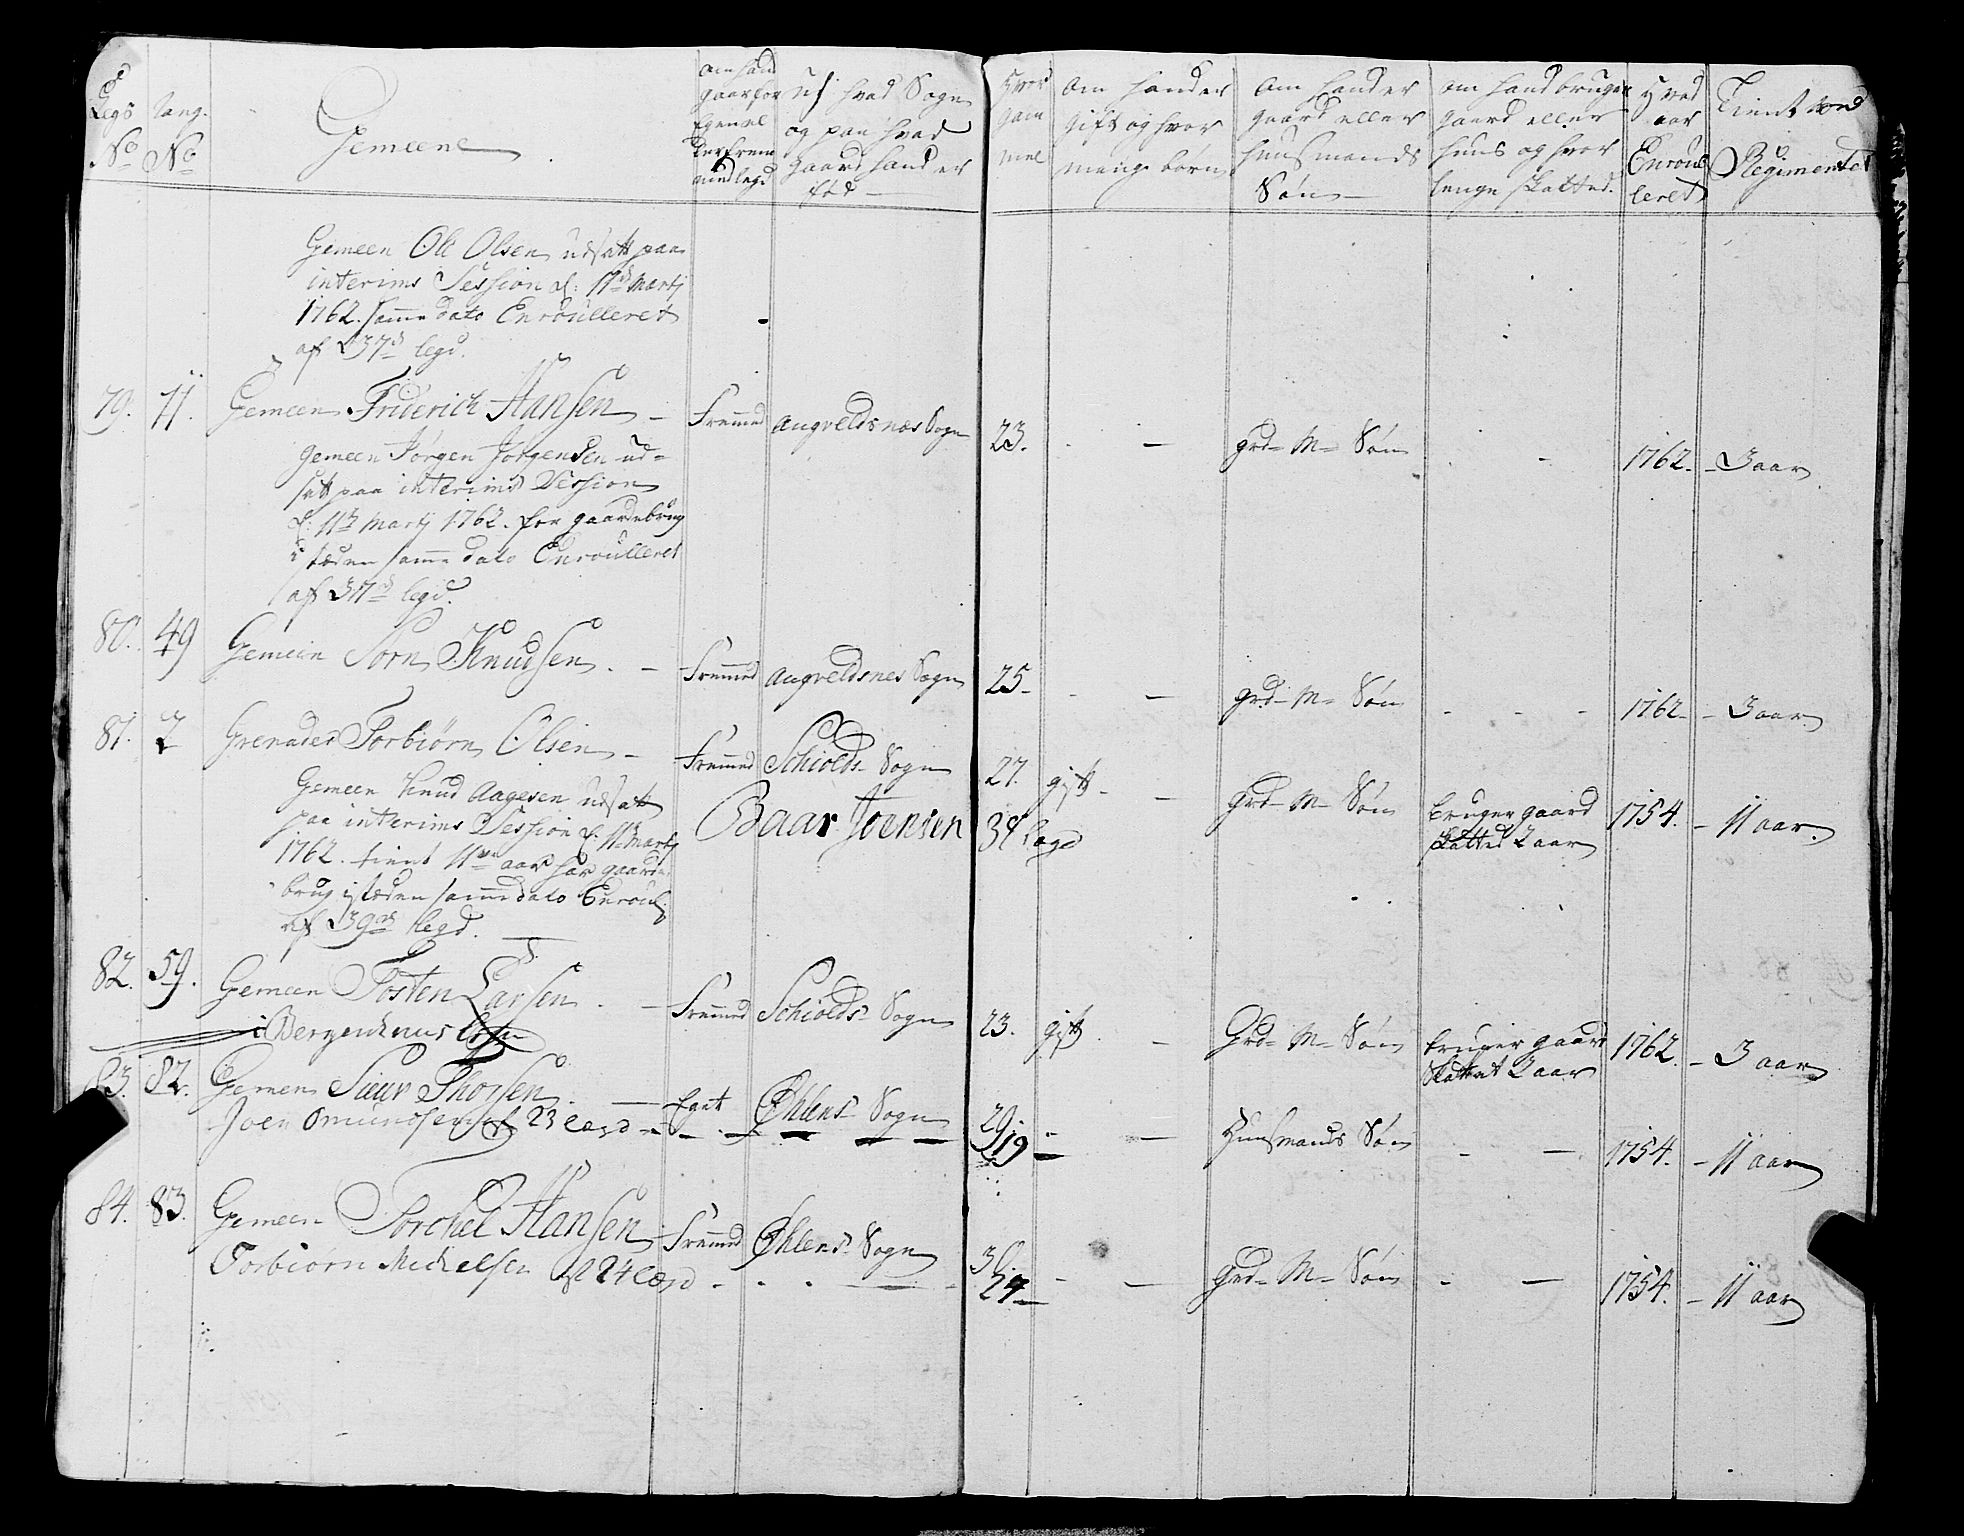 Legs Rang. Gemeene om hand gaar for Egen el ler frem med legd Uf hvad Sogn og paa hvad Gaard hand er fød — Hvor gam mel om hand er Gift og hvor mange børn om hand er gaard eller huusmands Søn — om hand bruger gaard eller huus og hvor lenge skatted. Hvad aar Enroul leret Tient ved Regimentet
No No
Gemeen Ole Olsen udsatt paa
interims Session d: 11te Martj
1762. samme dato Enroulleret
af 37te legd.
79. 11. Gemeen Friderich Hansen — Fremmed Augveldsnæs Sogn 23. - — grd = M = Søn - - 1762. — 3 aar
Gemeen Jørgen Jørgensen ud=
satt paa interims Session
d: 11te Martj 1762. for gaardebrug
i steden samme dato Enroulleret
af 37te legd.
80. 49 Gemeen Sørn Knudsen. — Fremmed Augveldsnes Sogn 25 - - — grd = M = Søn - - - 1762 - - 3 aar
81. 2 Grenader Torbiørn Olsen — Fremmed Schiolds Sogn 27. gift - — grd = M = Søn bruger gaard 1754. — 11 aar.
skatted 2 aar
Baar Joensen 38 legd
Gemeen Knud Aagesen udsatt
paa interims Session d. 11te Martj
1762. tient 11 aar har gaarde
brug i steden samme dato Enroul:
af 39te legd.
82. 59. Gemeen Tosten Larsen. — Fremmed Schiolds Sogn 23. gift. — Grd = M = Søn bruger gaard 1762. — 3 aar
skattet 2 aar
i Bergenhuus
83. 82. Gemen Siur Thorsen. — Eget Øhlens Sogn 29. - — Huusmands Søn - — 1754. — 11 aar
Joen Omundsen af 23 Legd - - - 19 —
84. 83. Gemeen Torchel Hansen Fremmed Øhlens Sogn 30. - — grd = M = Søn - — 1754. — 11 aar
Torbiørn Michelsen af 24 Legd - - - — 24 —